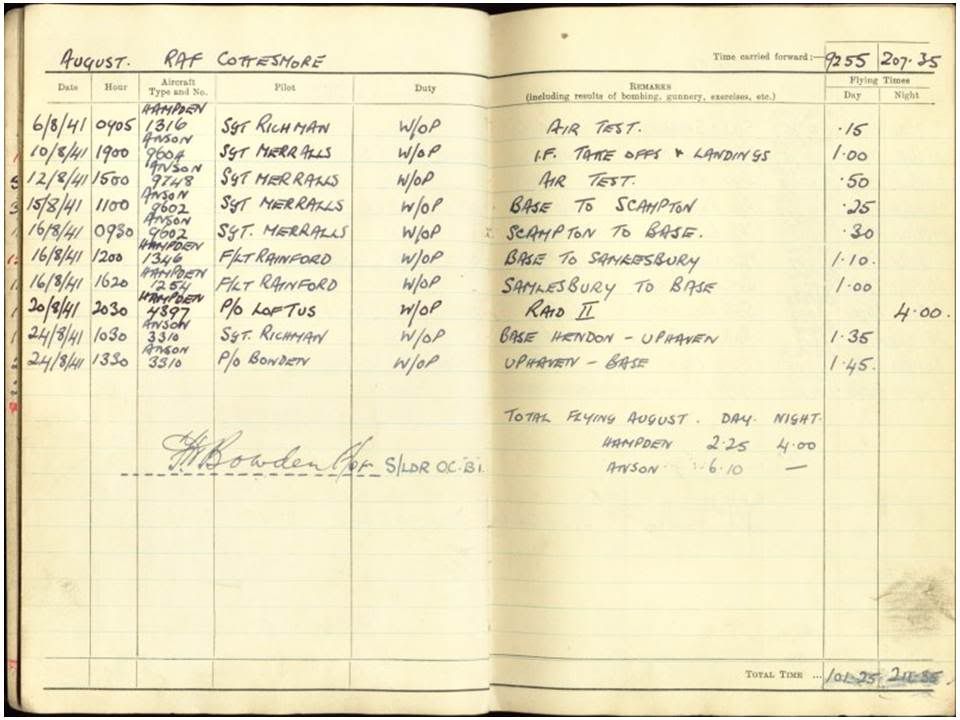 AUGUST. RAF COTTESMORE Time carried forward:— 9255 207.35
Date Hour Aircraft Type and No. Pilot Duty REMARKS (including results of bombing, gunnery, exercises, etc.) Flying Times Day Night
6/8/41 0905 HAMPDEN 1316 SGT RICHMAN W/OP AIR TEST. .15
10/8/41 1900 ANSON 9604 SGT MERRALLS W/OP I.F. TAKE OFFS & LANDINGS 1.00
12/8/41 1500 ANSON 9748 SGT MERRALLS W/OP AIR TEST. .50
15/8/41 1100 ANSON 9602 SGT MERRALLS W/OP BASE TO SCAMPTON .25
16/8/41 0930 ANSON 9602 SGT. MERRALLS W/OP SCAMPTON TO BASE. .30
16/8/41 1200 HAMPDEN 1346 F/LT RAINFORD W/OP BASE TO SAMLESBURY 1.10.
16/8/41 1620 HAMPDEN 1254 F/LT RAINFORD W/OP SAMLESBURY TO BASE 1.00
20/8/41 2030 HAMPDEN 4897 P/O LOFTUS W/OP RAID II 4.00.
24/8/41 1030 ANSON 3310 SGT. RICHMAN W/OP BASE HENDON - UPHAVEN 1.35
24/8/41 1330 ANSON 3310 P/O BOWDEN W/OP UPHAVEN - BASE 1.45.
TOTAL FLYING AUGUST. DAY. NIGHT.
HAMPDEN 2.25 4.00
ANSON 6.10 —
Bowden S/LDR OC.B.
TOTAL TIME ... 101.25